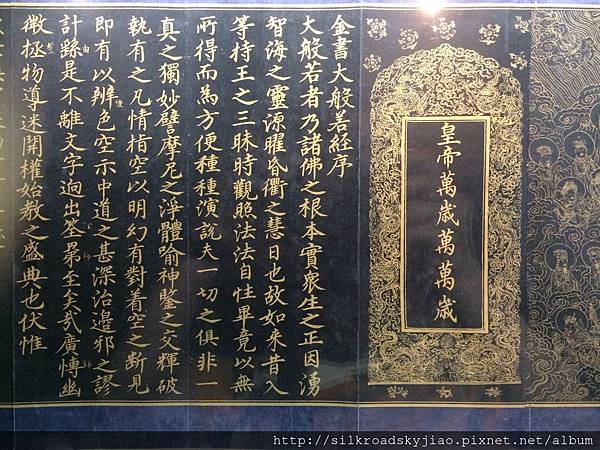 皇帝萬歲萬萬歲
金書大般若經序
大般若者乃諸佛之根本實衆生之正因湧
智海之靈源曜昏衢之慧日也故如来昔入
等持王之三昧時觀照法法自性畢竟以無
所得而為方便種種演說夫一切之俱非一
真之獨妙譬摩尼之淨體喻神鑒之交輝破
執有之凡情指空以明幻有對着空之断見
即有以辨色空示中道之甚深治邊邪之謬
計繇是不離文字逈出筌至矣哉廣愽幽
微極物導迷開權始教之盛典也伏惟
http://silkroadskyjiao.pixnet.net/album